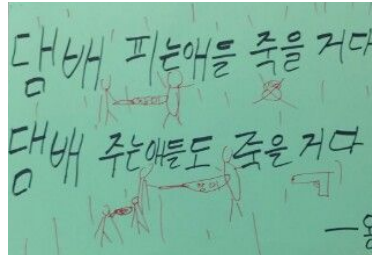 댐배 피는애들 죽을 거다
댐배 주는애들도 죽을 거다